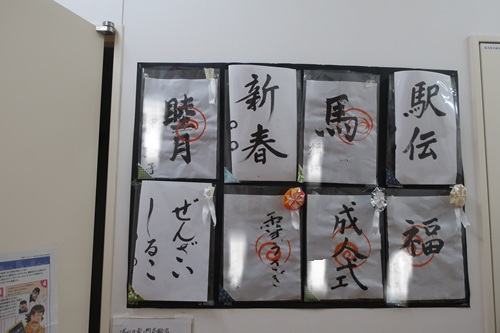 睦月
新春
馬
駅伝
ぜんざい
しるこ
雪うさぎ
成人式
福